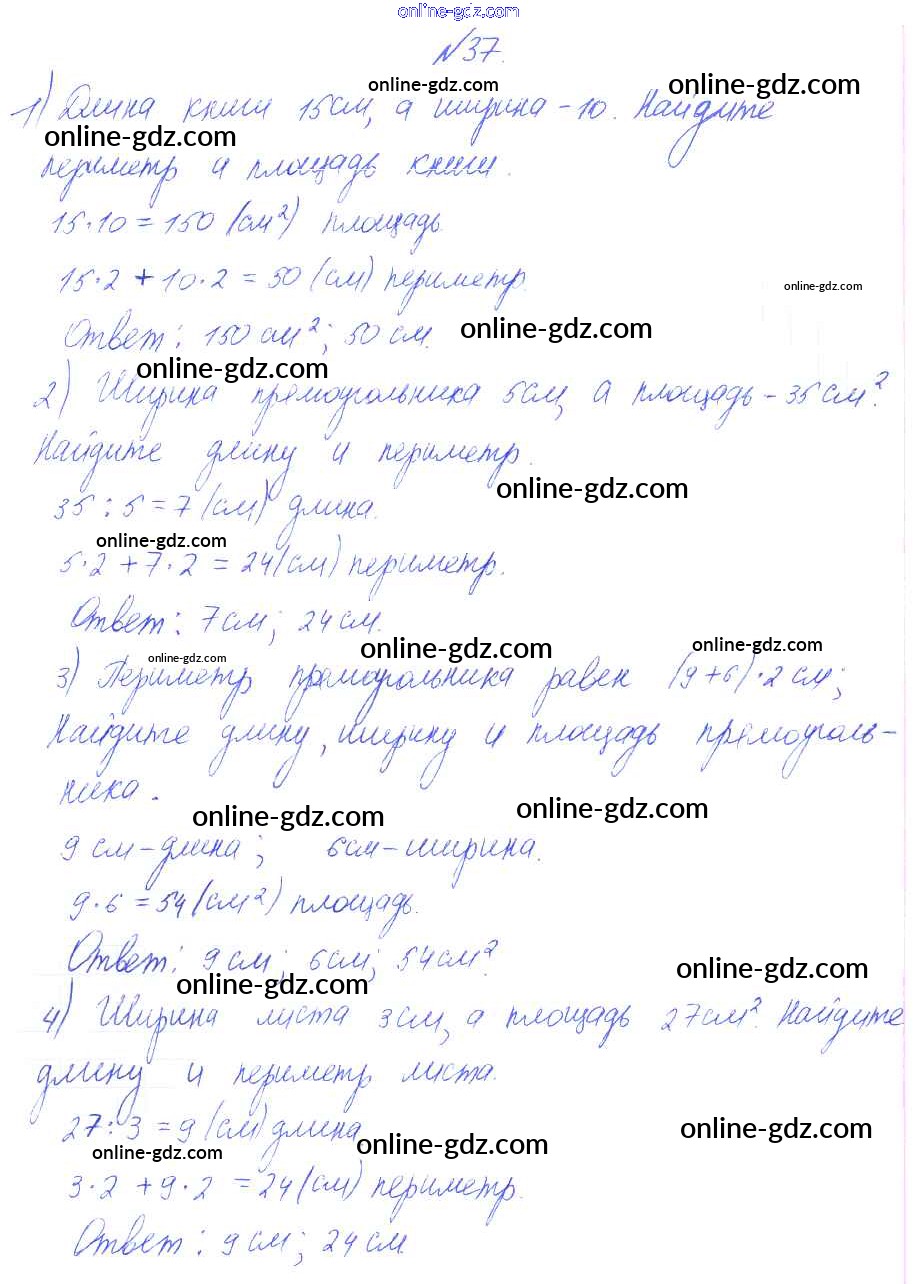 online-gdz.com
№37.
online-gdz.com online-gdz.com
1) Длина книги 15см, а ширина - 10. Найдите
online-gdz.com online-gdz.com
периметр и площадь книги.
15·10 = 150 (см²) площадь
15·2 + 10·2 = 50 (см) периметр.
online-gdz.com
Ответ: 150 см²; 50 см.
online-gdz.com
online-gdz.com
2) Ширина прямоугольника 5см, а площадь - 35см².
Найдите длину и периметр.
online-gdz.com
35 : 5 = 7 (см) длина.
online-gdz.com
5·2 + 7·2 = 24(см) периметр.
Ответ: 7см; 24см.
online-gdz.com online-gdz.com online-gdz.com
3) Периметр прямоугольника равен (9+6)·2см;
Найдите длину, ширину и площадь прямоуголь-
ника.
online-gdz.com online-gdz.com
9 см - длина; 6см - ширина.
9·6 = 54 (см²) площадь.
Ответ: 9см; 6см; 54см².
online-gdz.com
online-gdz.com
4) Ширина листа 3см, а площадь 27см². Найдите
длину и периметр листа.
27:3 = 9 (см) длина
online-gdz.com online-gdz.com online-gdz.com
3·2 + 9·2 = 24 (см) периметр.
Ответ: 9см; 24см